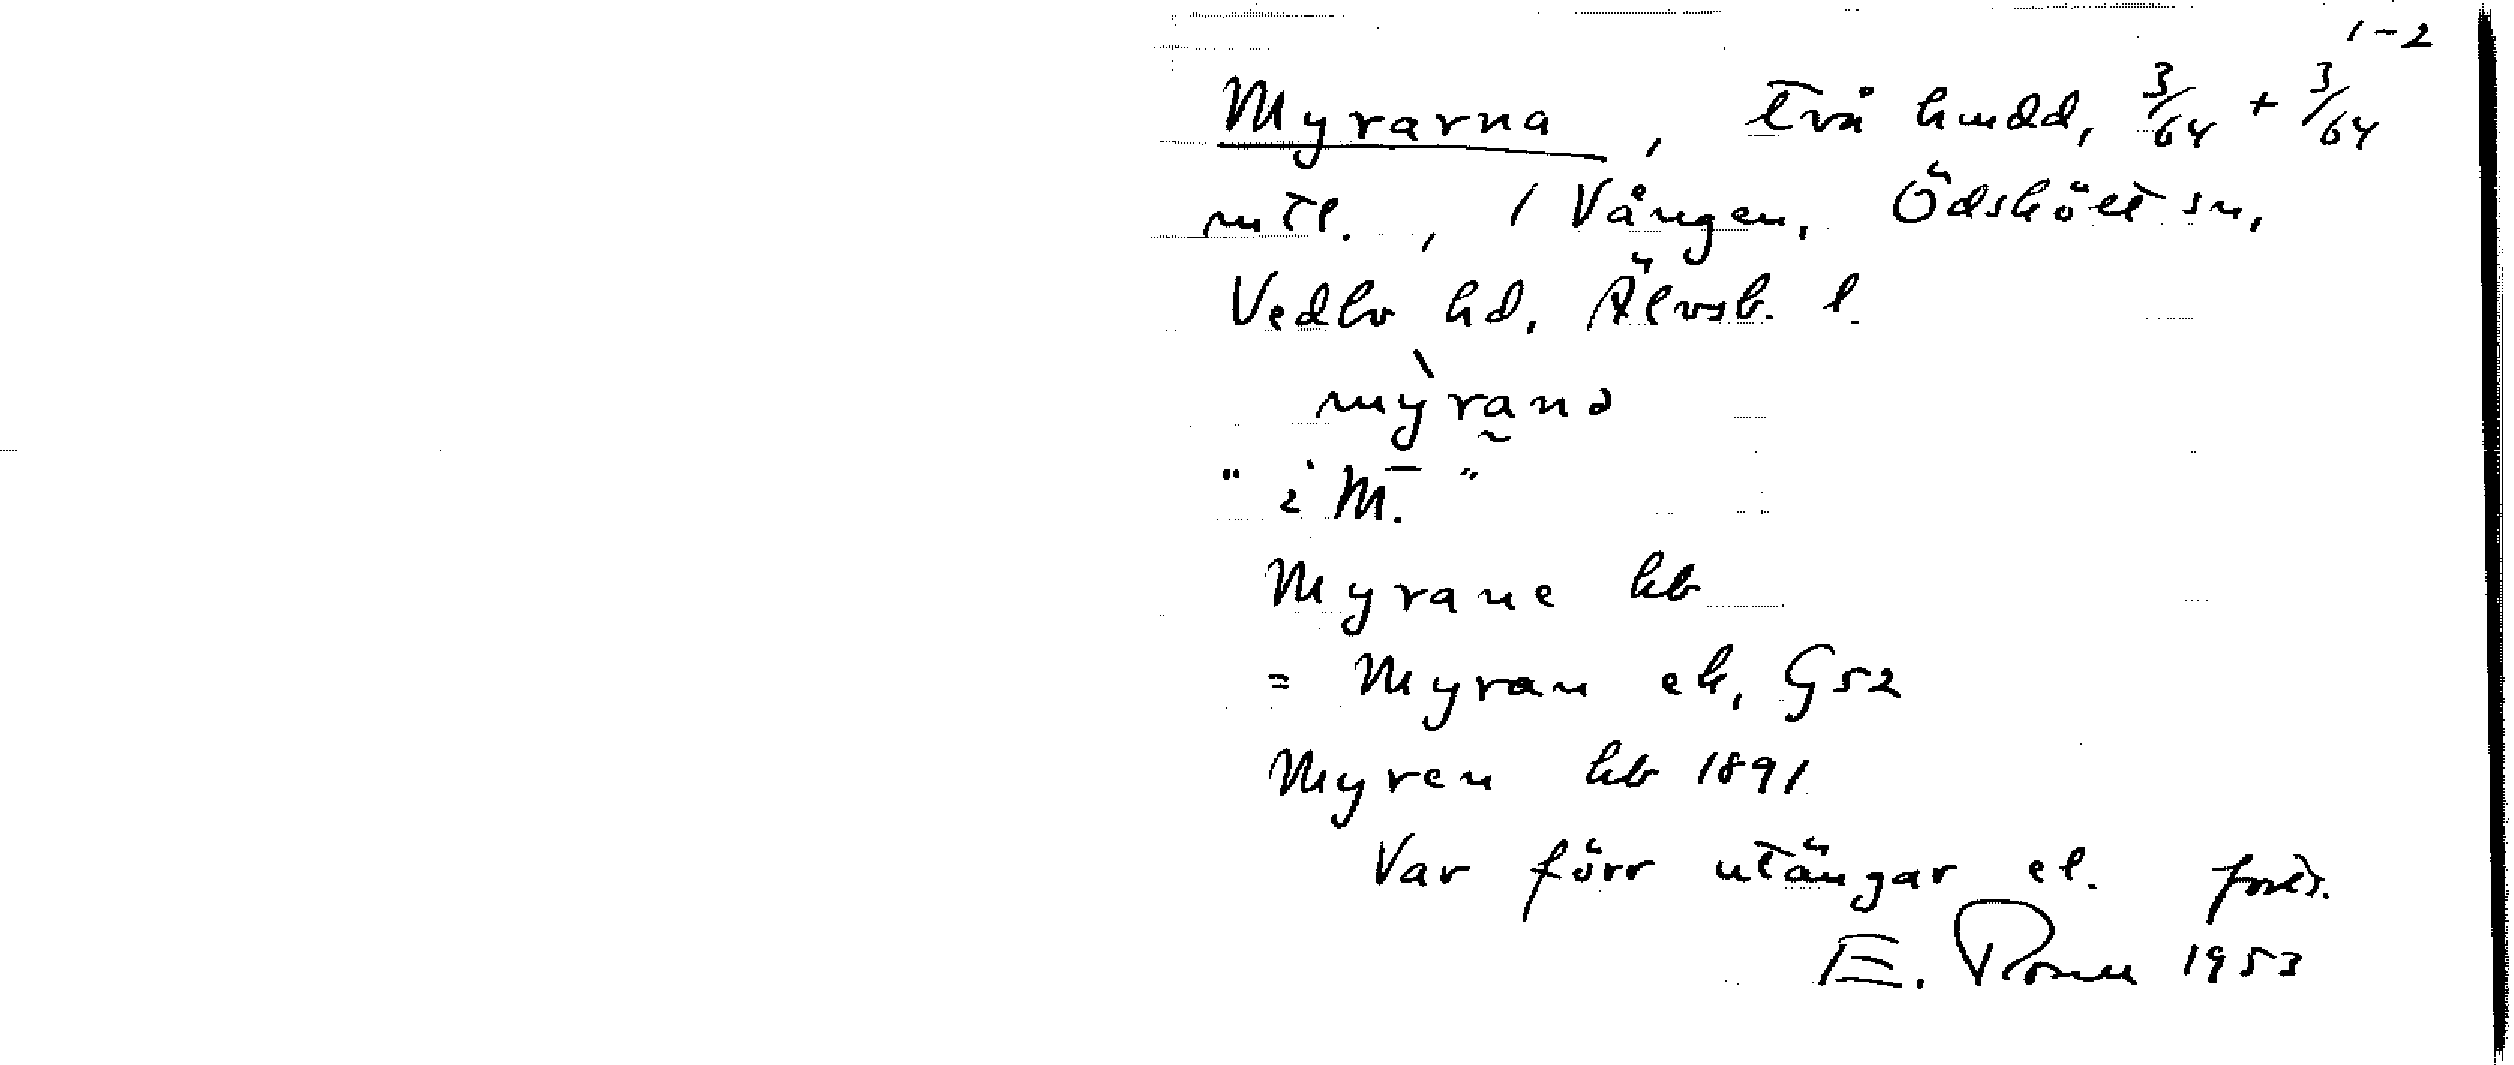 1-2
Myrarna, två hmdd, 3/64 + 3/64
mtl., i Vången, Ödsköлt sn,
Vedbo hd, Älvsb. l.
mỳrana
"i M."
Myrane kb
= Myran ek, G52
Myren kb 1891
Var förr utängar el.
E. 1953